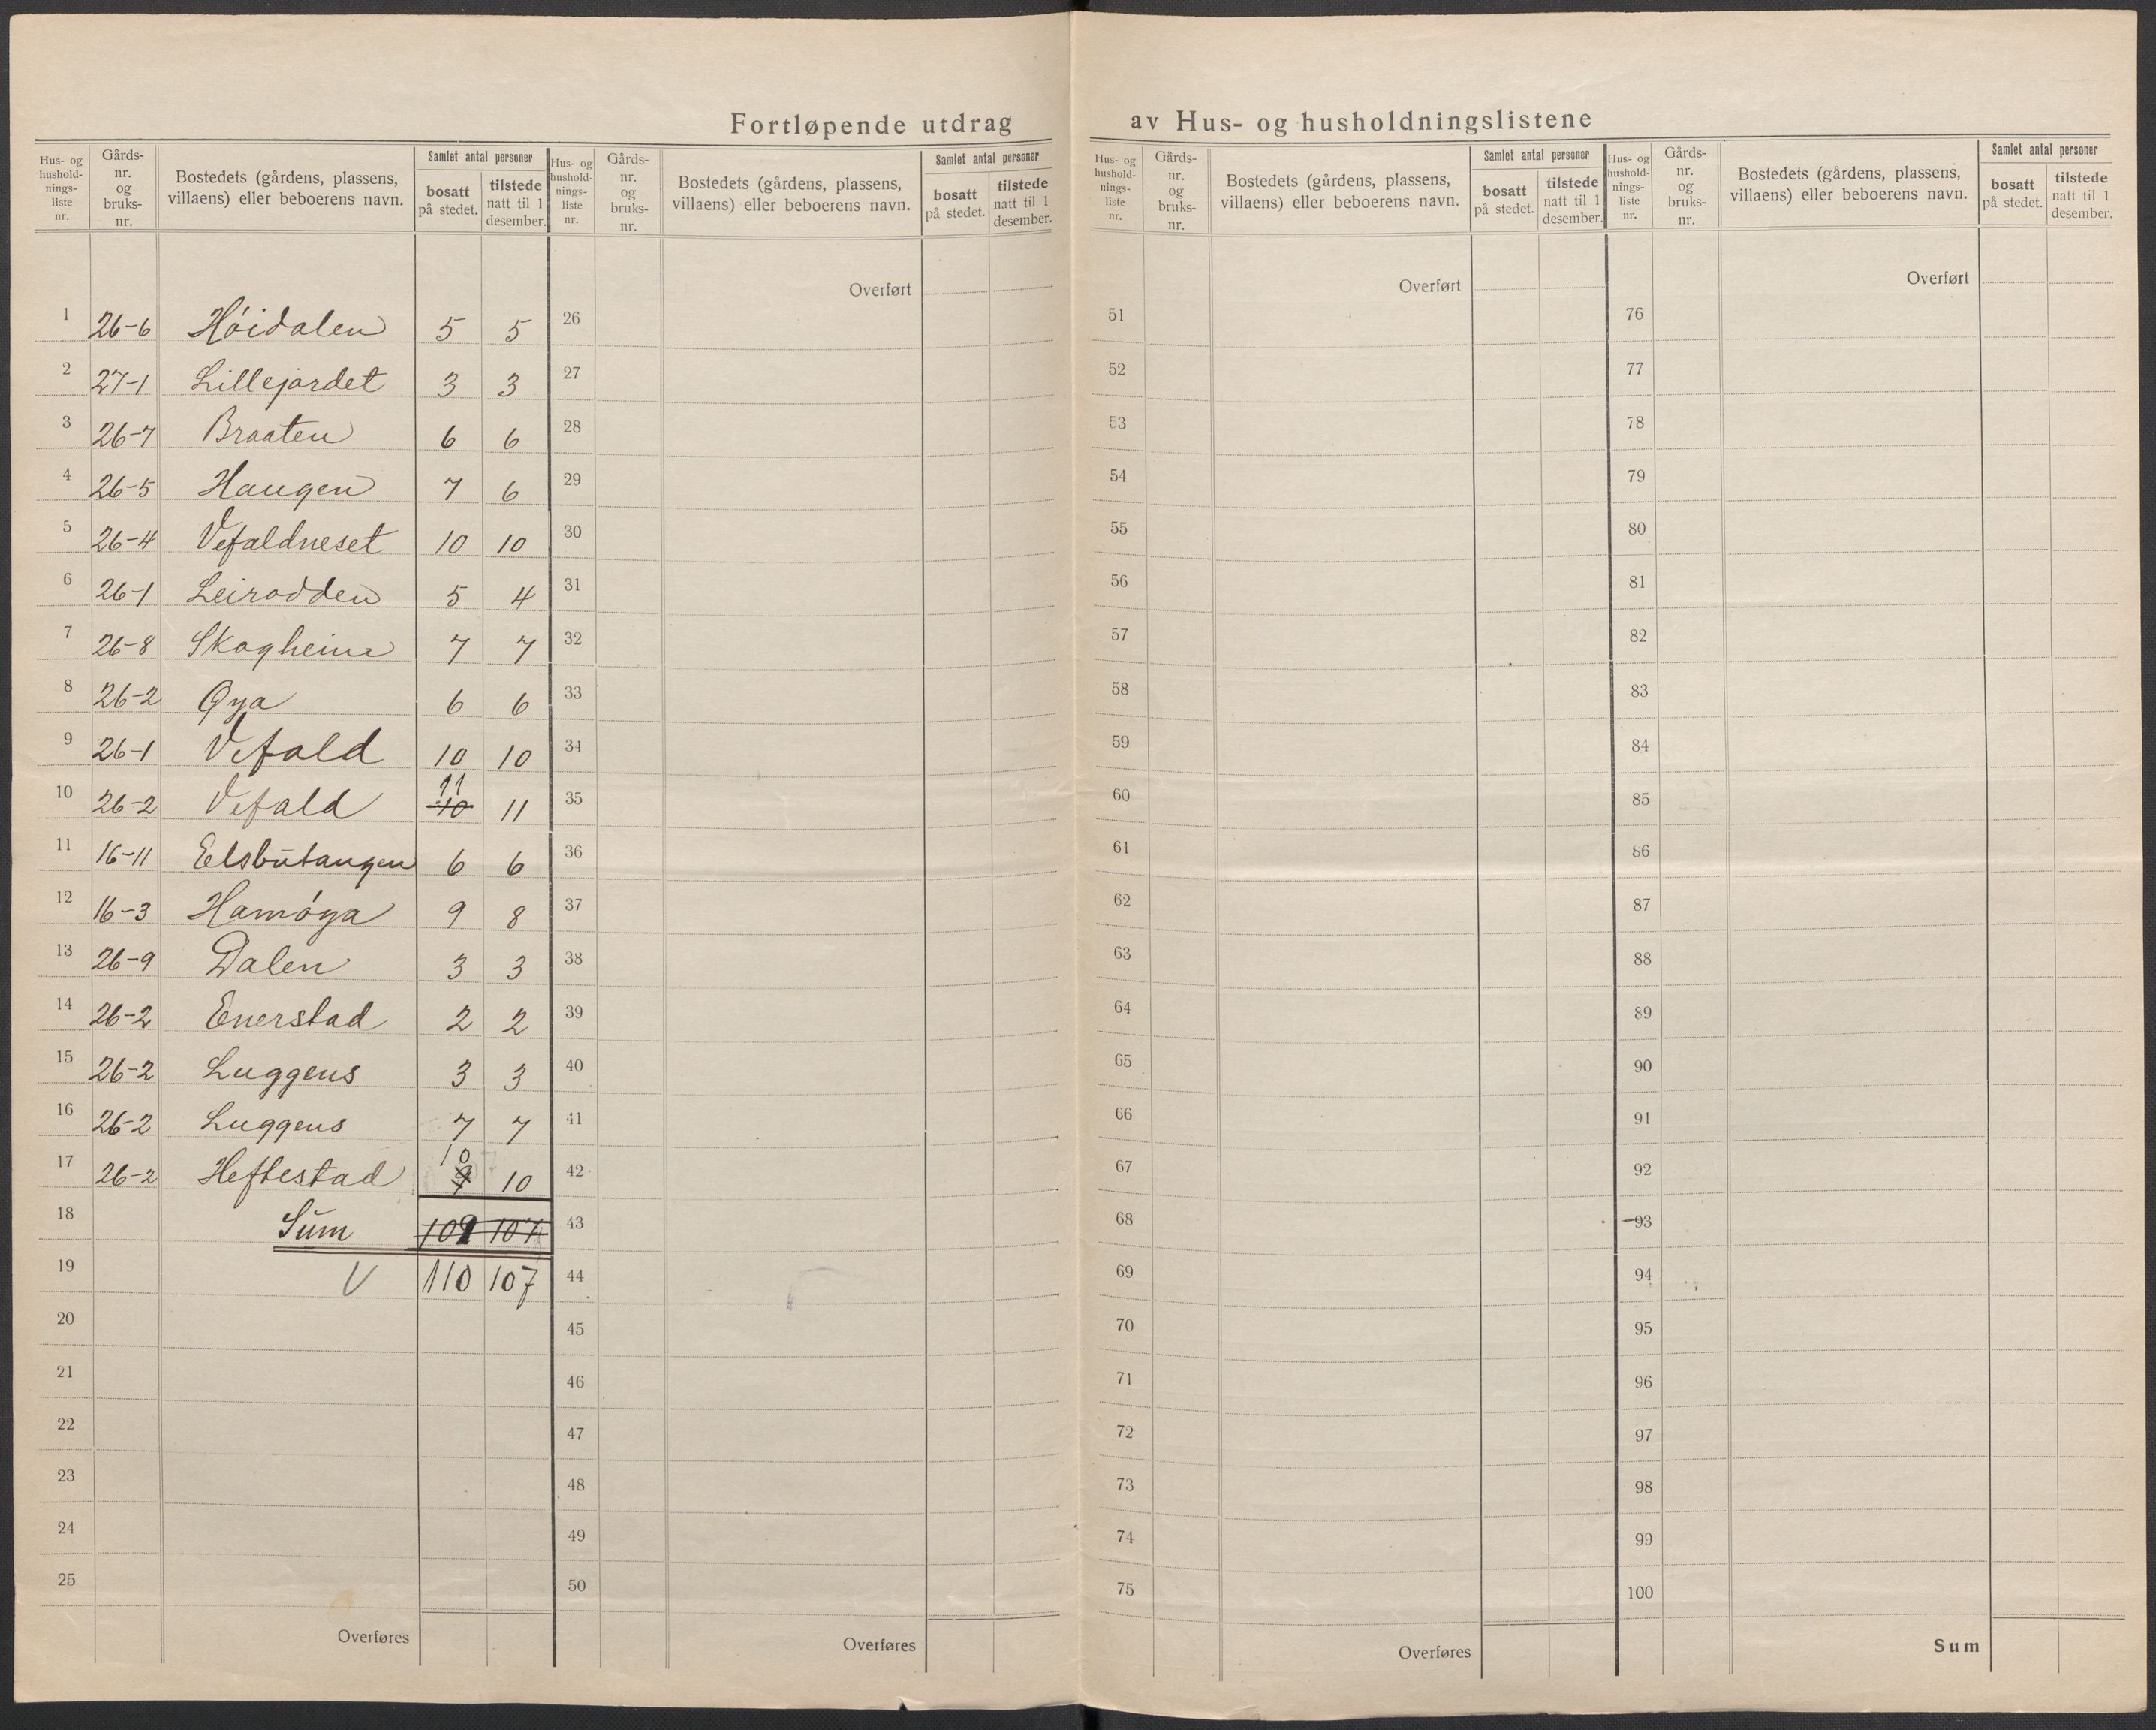 Fortløpende utdrag av Hus- og husholdningslistene
Hus- og hushold- nings- liste nr. | Gårds- nr. og bruks- nr. | Bostedets (gårdens, plassens, villaens) eller beboerens navn. | Samlet antal personer | bosatt på stedet. | tilstede natt til 1 desember.
Hus- og hushold- nings- liste nr. | Gårds- nr. og bruks- nr. | Bostedets (gårdens, plassens, villaens) eller beboerens navn. | Samlet antal personer | bosatt på stedet. | tilstede natt til 1 desember.
Hus- og hushold- nings- liste nr. | Gårds- nr. og bruks- nr. | Bostedets (gårdens, plassens, villaens) eller beboerens navn. | Samlet antal personer | bosatt på stedet. | tilstede natt til 1 desember.
Hus- og hushold- nings- liste nr. | Gårds- nr. og bruks- nr. | Bostedets (gårdens, plassens, villaens) eller beboerens navn. | Samlet antal personer | bosatt på stedet. | tilstede natt til 1 desember.
1 26-6 Höidalen 5 5
2 27-1 Lillejordet 3 3
3 26-7 Braaten 6 6
4 26-5 Haugen 7 6
5 26-4 Vefaldneset 10 10
6 26-1 Leirodden 5 4
7 26-8 Skogheim 7 7
8 26-2 Øya 6 6
9 26-1 Vefald 10 10
11
10 26-2 Vefald 10 11
11 16-11 Eelsbutangen 6 6
12 16-3 Hamöya 9 8
13 26-9 Dalen 3 3
14 26-2 Enerstad 2 2
15 26-2 Luggens 3 3
16 26-2 Luggens 7 7
10
17 26-2 Heftestad 10
18 Sum 109 107
19 V 110 107
20
21
22
23
24
25
Overføres
Overført
26
27
28
29
30
31
32
33
34
35
36
37
38
39
40
41
42
43
44
45
46
47
48
49
50
Overføres
Overført
51
52
53
54
55
56
57
58
59
60
61
62
63
64
65
66
67
68
69
70
71
72
73
74
75
Overføres
Overført
76
77
78
79
80
81
82
83
84
85
86
87
88
89
90
91
92
93
94
95
96
97
98
99
100
Sum